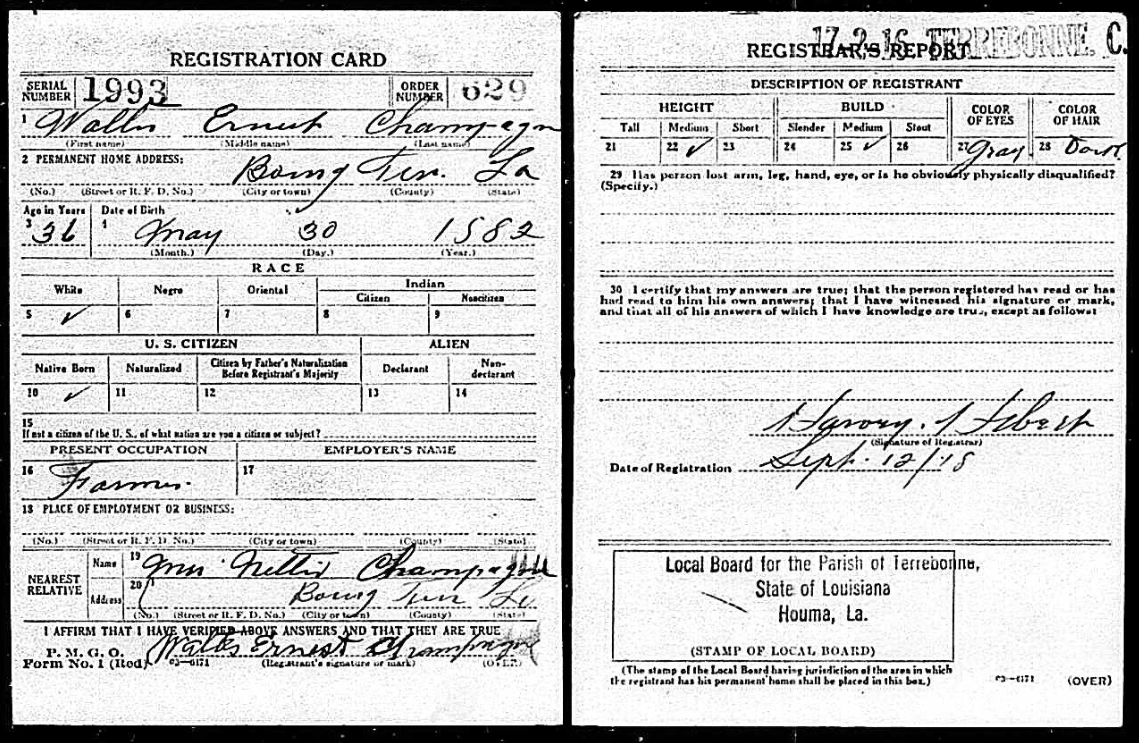 REGISTRATION CARD
SERIAL NUMBER 1993 ORDER NUMBER 629
1 Ernest Champagne
(First name) (Middle name) (Last name)
2 PERMANENT HOME ADDRESS:
La
(No.) (Street or R. F. D. No.) (City or town) (County) (State)
Age in Years Date of Birth
3 36 4 May 30 1882
(Month.) (Day.) (Year.)
RACE
White Negro Oriental Indian
Citizen Noncitizen
5 ✓ 6 7 8 9
U. S. CITIZEN ALIEN
Native Born Naturalized Citizen by Father's Naturalization Before Registrant's Majority Declarant Non-declarant
10 ✓ 11 12 13 14
15
If not a citizen of the U. S., of what nation are you a citizen or subject?
PRESENT OCCUPATION EMPLOYER'S NAME
16 Farmer 17
18 PLACE OF EMPLOYMENT OR BUSINESS:
(No.) (Street or R. F. D. No.) (City or town) (County) (State)
NEAREST RELATIVE Name 19 Mrs Champagne
Address 20 La
(No.) (Street or R. F. D. No.) (City or town) (County) (State)
I AFFIRM THAT I HAVE VERIFIED ABOVE ANSWERS AND THAT THEY ARE TRUE
P. M. G. O.
Form No. 1 (Red) 03-6171 Ernest Champagne
(Registrant's signature or mark) (OVER)
17-2-16 TERREBONNE. C.
REGISTRAR'S REPORT
DESCRIPTION OF REGISTRANT
HEIGHT BUILD COLOR OF EYES COLOR OF HAIR
Tall Medium Short Slender Medium Stout
21 22 ✓ 23 24 25 ✓ 26 27 Gray 28 Dark
29 Has person lost arm, leg, hand, eye, or is he obviously physically disqualified?
(Specify.)
30 I certify that my answers are true; that the person registered has read or has
had read to him his own answers; that I have witnessed his signature or mark,
and that all of his answers of which I have knowledge are true, except as follows:
(Signature of Registrar)
Date of Registration Sept. 12/18
Local Board for the Parish of Terrebonne,
State of Louisiana
Houma, La.
(STAMP OF LOCAL BOARD)
(The stamp of the Local Board having jurisdiction of the area in which
the registrant has his permanent home shall be placed in this box.)
03-6171 (OVER)